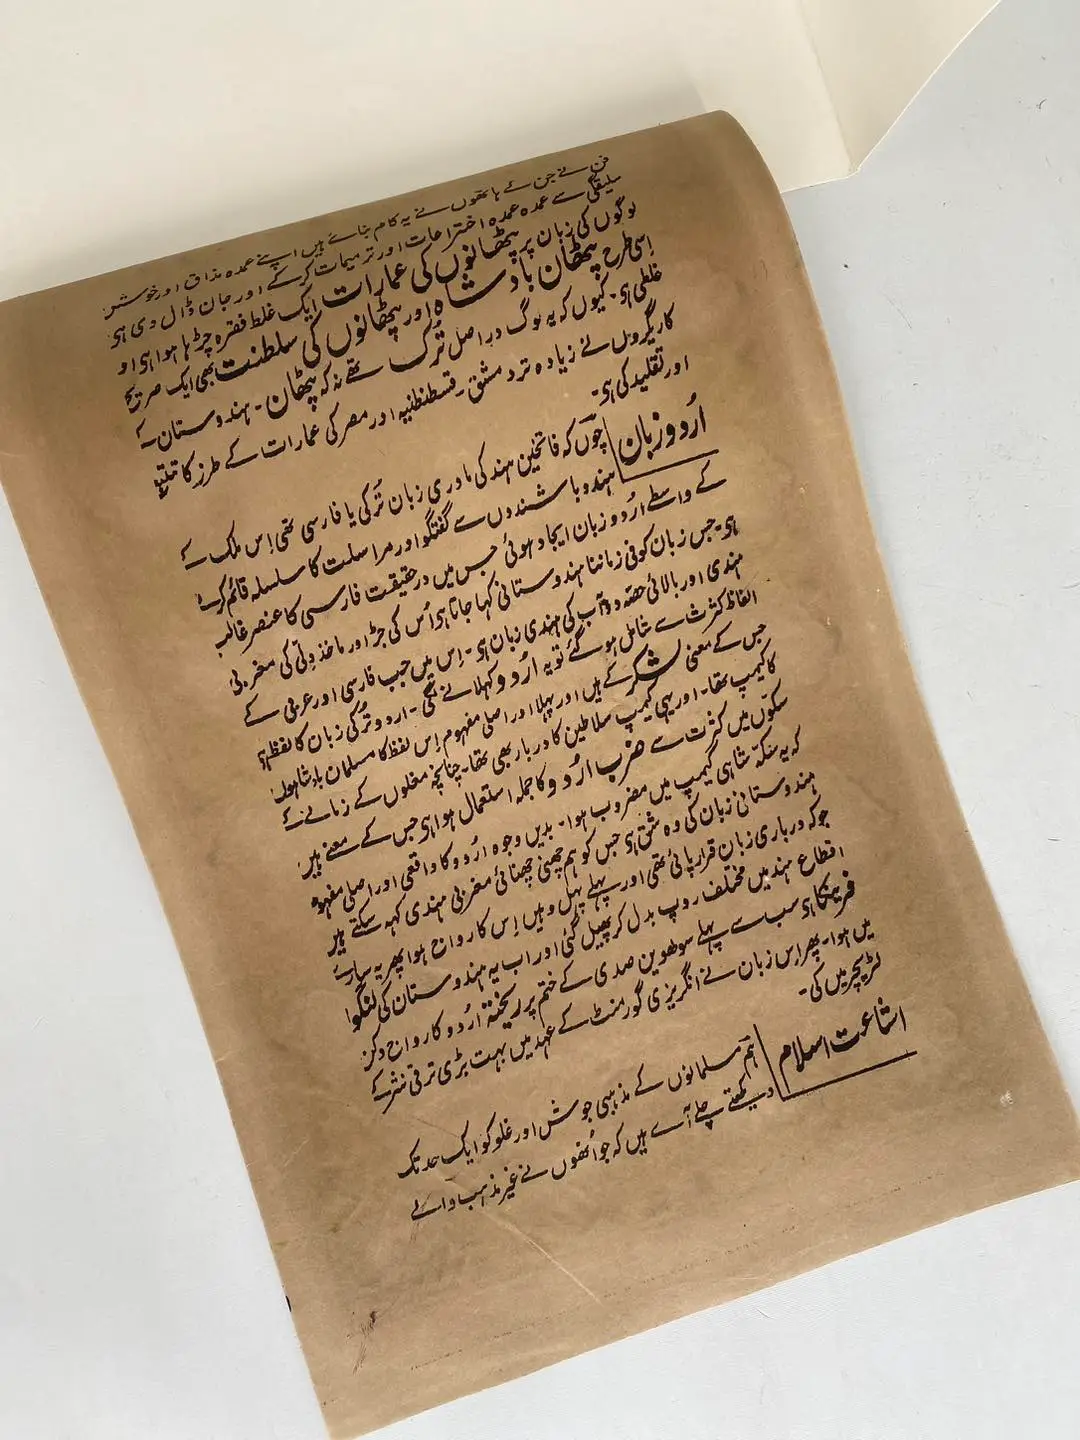 فن نے جن کے ہاتھوں نے یہ کام بنائے ہیں اپنے عمدہ مذاق اور خوش
سلیقگی سے عمدہ عمدہ اختراعات اور ترمیمات کر کے اور جان ڈال دی ہی
لوگوں کی زبان پر پٹھانوں کی عمارات ایک غلط فقرہ چڑہا ہوا ہی او
اِسی طرح پٹھان بادشاہ اور پٹھانوں کی سلطنت بھی ایک صریح
غلطی ہی۔ کیوں کہ یہ لوگ در اصل تُرک تھے نہ کہ پٹھان۔ ہندوستان کے
کاریگروں نے زیادہ تر دمشق۔ قسطنطنیہ اور مصر کی عمارات کے طرز کا تتبع
اور تقلید کی ہی۔
اُردو زبان چوں کہ فاتحین ہند کی مادری زبان تُرکی یا فارسی تھی اِس ملک کے
ہندو باشندوں سے گفتگو اور مراسلت کا سلسلہ قائم کرنے
کے واسطے اُردو زبان ایجاد ہوئی جس میں در حقیقت فارسی کا عنصر غالب
ہی۔ جس زبان کو فی زماننا ہندوستانی کہا جاتا ہی اُس کی جڑ اور ماخذ دِلّی کی مغربی
ہندی اور بالائی حصّہ دوآب کی ہندی زبان ہی۔ اِس میں جب فارسی اور عربی کے
الفاظ کثرت سے شامل ہو گئے تو یہ اُردو کہلانے لگی۔ اردو تُرکی زبان کا لفظ ہی
جس کے معنی لشکر کے ہیں اور پہلا اور اصلی مفہوم اِس لفظ کا مسلمان بادشاہوں
کا کیمپ تھا۔ اور یہی کیمپ سلاطین کا دربار بھی تھا۔ چنانچہ مغلوں کے زمانے کے
سکّوں میں کثرت سے ضرب اردو کا جملہ استعمال ہوا ہی جس کے معنے ہیں
کہ یہ سکّہ شاہی کیمپ میں مضروب ہوا۔ بدیں وجوہ اردو کا واقعی اور اصلی مفہوم
ہندوستانی زبان کی وہ شق ہی جس کو ہم چھنی چھنائی مغربی ہندی کہہ سکتے ہیں
جو کہ درباری زبان قرار پائی تھی اور پہلے پہل وہیں اِس کا رواج ہوا پھر یہ سارے
اقطاع ہند میں مختلف روپ بدل کر پھیل گئی اور اب یہ ہندوستان کی لنگوا
فرینکا ہی سب سے پہلے سولھویں صدی کے ختم پر ریختۂ اُردو کا رواج دکن
میں ہوا۔ پھر اِس زبان نے انگریزی گورمنٹ کے عہد میں بہت بڑی ترقی نثر کے
لٹریچر میں کی۔
اشاعت اسلام ہم مسلمانوں کے مذہبی جوش اور غلو کو ایک حد تک
دیکھتے چلے آے ہیں کہ جو اُنھوں نے غیر مذہب والے